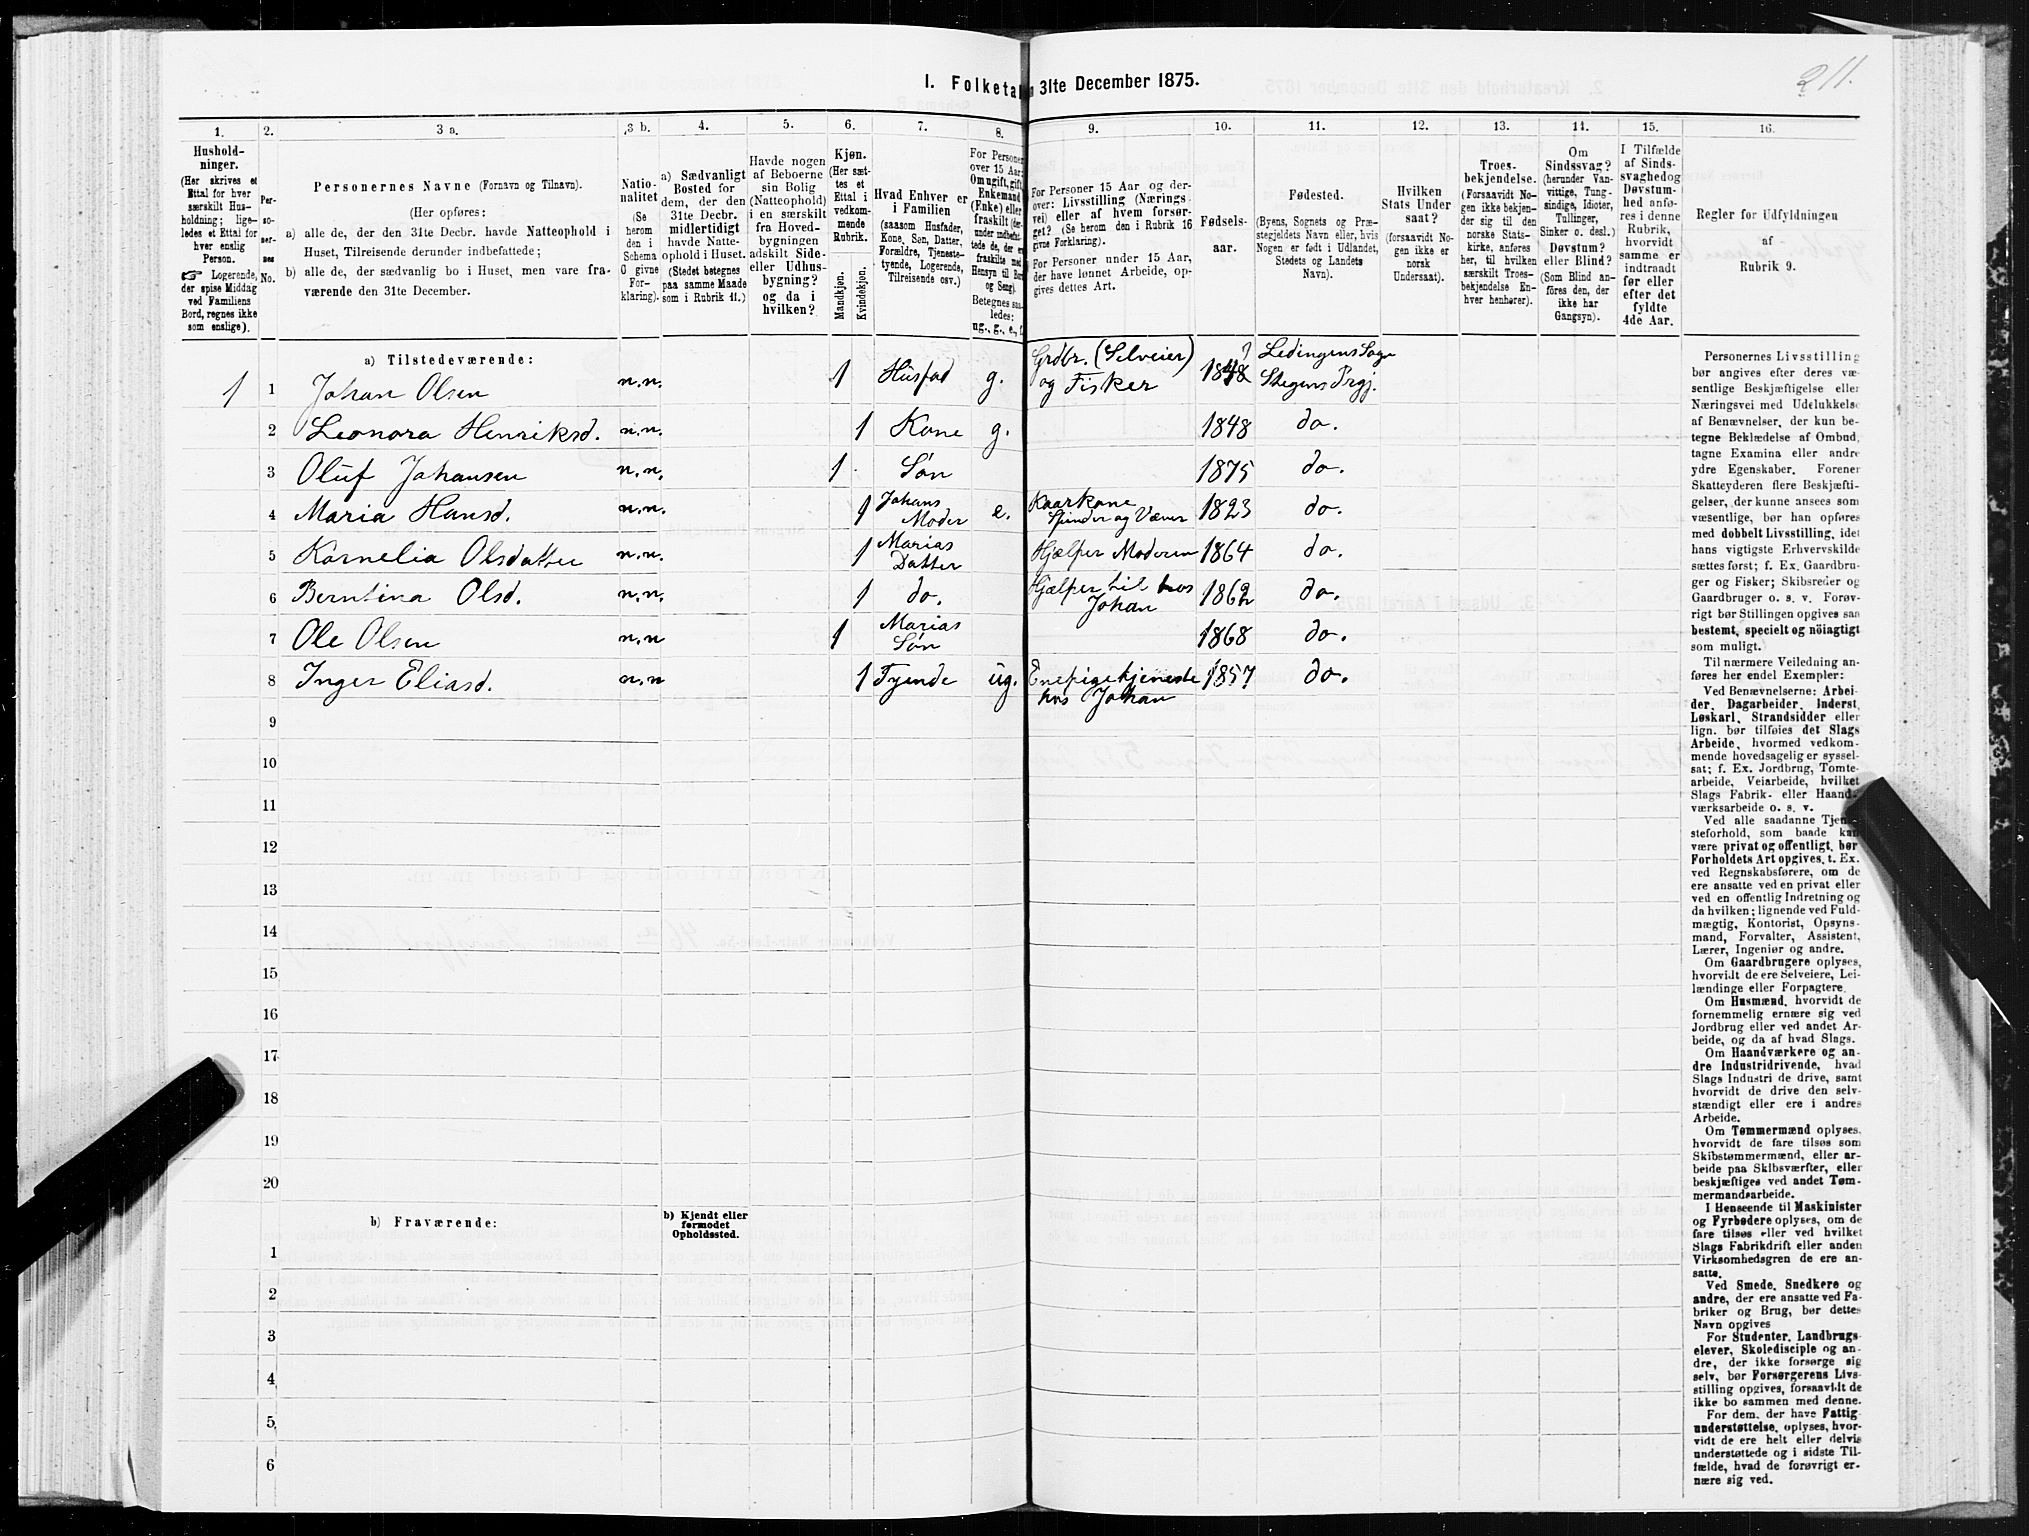 I. Folketal 31te December 1875.
211.
1. 2. 3 a. 3 b. 4. 5. 6. 7. 8. 9. 10. 11. 12. 13. 14. 15. 16.
Hushold-
ninger.
(Her skrives et
Ettal for hver
særskilt Hus-
holdning; lige-
ledes et Ettal for
hver enslig
Person.
☞ Logerende,
der spise Middag
ved Familiens
Bord, regnes ikke
som enslige).
Per-
so-
ner-
nes
No.
Personernes Navne (Fornavn og Tilnavn).
(Her opføres:
a) alle de, der den 31te Decbr. havde Natteophold i
Huset, Tilreisende derunder indbefattede;
b) alle de, der sædvanlig bo i Huset, men vare fra-
værende den 31te December.
Natio-
nalitet
(Se
herom
den i
Schema
O givne
For-
klaring).
a) Sædvanligt
Bosted for
dem, der den
31te Decbr.
midlertidigt
havde Natte-
ophold i Huset.
(Stedet betegnes
paa samme Maade
som i Rubrik 11.)
Havde nogen
af Beboerne
sin Bolig
(Natteophold)
i en særskilt
fra Hoved-
bygningen
adskilt Side-
eller Udhus-
bygning?
og da i
hvilken?
Kjøn.
(Her sæt-
tes et
Ettal i
vedkom-
mende
Rubrik.
Mandkjøn.
Kvindekjøn.
Hvad Enhver er
i Familien
(saasom Husfader,
Kone, Søn, Datter,
Forældre, Tjeneste-
tyende, Logerende,
Tilreisende osv.)
For Personer
over 15 Aar:
Om ugift, gift,
Enkemand
(Enke) eller
fraskilt (der-
under indbefat-
tede de, der ere
fraskilte med
Hensyn til Bord
og Seng).
Betegnes saa-
ledes:
ug., g., e., f.
For Personer 15 Aar og der-
over: Livsstilling (Nærings-
vei) eller af hvem forsør-
get? (Se herom den i Rubrik 16
givne Forklaring).
For Personer under 15 Aar,
der have lønnet Arbeide, op-
gives dettes Art.
Fødsels-
aar.
Fødested.
(Byens, Sognets og Præ-
stegjeldets Navn eller, hvis
Nogen er født i Udlandet,
Stedets og Landets
Navn).
Hvilken
Stats Under
saat?
(forsaavidt No-
gen ikke er
norsk
Undersaat).
Troes-
bekjendelse.
(Forsaavidt No-
gen ikke bekjen-
der sig til den
norske Stats-
kirke, anføres
her, til hvilken
særskilt Troes-
bekjendelse En-
hver henhører).
Om
Sindssvag?
(herunder Van-
vittige, Tung-
sindige, Idioter,
Tullinger,
Sinker o. desl.)
Døvstum?
eller Blind?
(Som Blind an-
føres den, der
ikke har
Gangsyn).
I Tilfælde
af Sinds-
svaghed og
Døvstum-
hed anfø-
res i denne
Rubrik,
hvorvidt
samme er
indtraadt
før eller
efter det
fyldte
4de Aar.
Regler for Udfyldningen
af
Rubrik 9.
a) Tilstedeværende:
1 1 Johan Olsen n.n. 1 Husfad g. Grdbr. (Selveier) og Fisker 1848 ? Ledingens Sogn Stegens Prgj.
2 Leonora Henriksd. n.n. 1 Kone g. 1848 do.
3 Oluf Johansen n.n. 1 Søn 1875 do.
4 Maria Hansd. n.n. 1 Johans Moder e. Kaarkone Spinder og Væver 1823 do.
5 Kornelia Olsdatter n.n. 1 Marias Datter Hjælper Moderen 1864 do.
6 Berntina Olsd. n.n. 1 do. Hjælper til hos Johan 1862 do.
7 Ole Olsen n.n 1 Marias Søn 1868 do.
8 Inger Eliasd. n.n 1 Tyende ug. Enepigetjeneste hos Johan 1857 do.
9
10
11
12
13
14
15
16
17
18
19
20
b) Fraværende:
b) Kjendt eller
formodet
Opholdssted.
1
2
3
4
5
6
Personernes Livsstilling
bør angives efter deres væ-
sentlige Beskjæftigelse eller
Næringsvei med Udelukkelse
af Benævnelser, der kun be-
tegne Beklædelse af Ombud,
tagne Examina eller andre
ydre Egenskaber. Forener
Skatteyderen flere Beskjæfti-
gelser, der kunne ansees som
væsentlige, bør han opføres
med dobbelt Livsstilling, idet
hans vigtigste Erhvervskilde
sættes først; f. Ex. Gaardbru-
ger og Fisker; Skibsreder og
Gaardbruger o. s. v. Forøv-
rigt bør Stillingen opgives saa
bestemt, specielt og nöiagtigt
som muligt.
Til nærmere Veiledning an-
føres her endel Exempler:
Ved Benævnelserne: Arbei-
der, Dagarbeider, Inderst,
Løskarl, Strandsidder eller
lign. bør tilføies det Slags
Arbeide, hvormed vedkom-
mende hovedsagelig er syssel-
sat; f. Ex. Jordbrug, Tomte-
arbeide, Veiarbeide, hvilket
Slags Fabrik- eller Haand-
værksarbeide o. s. v.
Ved alle saadanne Tjene-
steforhold, som baade kan
være privat og offentligt, bør
Forholdets Art opgives, t. Ex.
ved Regnskabsførere, om de
ere ansatte ved en privat eller
ved en offentlig Indretning og
da hvilken; lignende ved Fuld-
mægtig, Kontorist, Opsyns-
mand, Forvalter, Assistent,
Lærer, Ingeniør og andre.
Om Gaardbrugere oplyses,
hvorvidt de ere Selveiere, Lei-
lændinge eller Forpagtere.
Om Husmænd, hvorvidt de
fornemmelig ernære sig ved
Jordbrug eller ved andet Ar-
beide, og da af hvad Slags.
Om Haandværkere og an-
dre Industridrivende, hvad
Slags Industri de drive, samt
hvorvidt de drive den selv-
stændigt eller ere i andres
Arbeide.
Om Tømmermænd oplyses,
hvorvidt de fare tilsøs som
Skibstømmermænd, eller ar-
beide paa Skibsværfter, eller
beskjæftiges ved andet Tøm-
mermandsarbeide.
I Henseende til Maskinister
og Fyrbødere oplyses, om de
fare tilsøs eller ved hvilket
Slags Fabrikdrift eller anden
Virksomhedsgren de ere an-
satte.
Ved Smede, Snedkere og
andre, der ere ansatte ved Fa-
briker og Brug, bør dettes
Navn opgives
For Studenter, Landbrugs-
elever, Skoledisciple og an-
dre, der ikke forsørge sig
selv, bør Forsørgerens Livs-
stilling opgives, forsaavidt de
ikke bo sammen med denne.
For dem, der have Fattig-
understøttelse, oplyses, hvor-
vidt de ere helt eller delvis
understøttede og i sidste Til-
fælde, hvad de forøvrigt er-
nære sig ved.